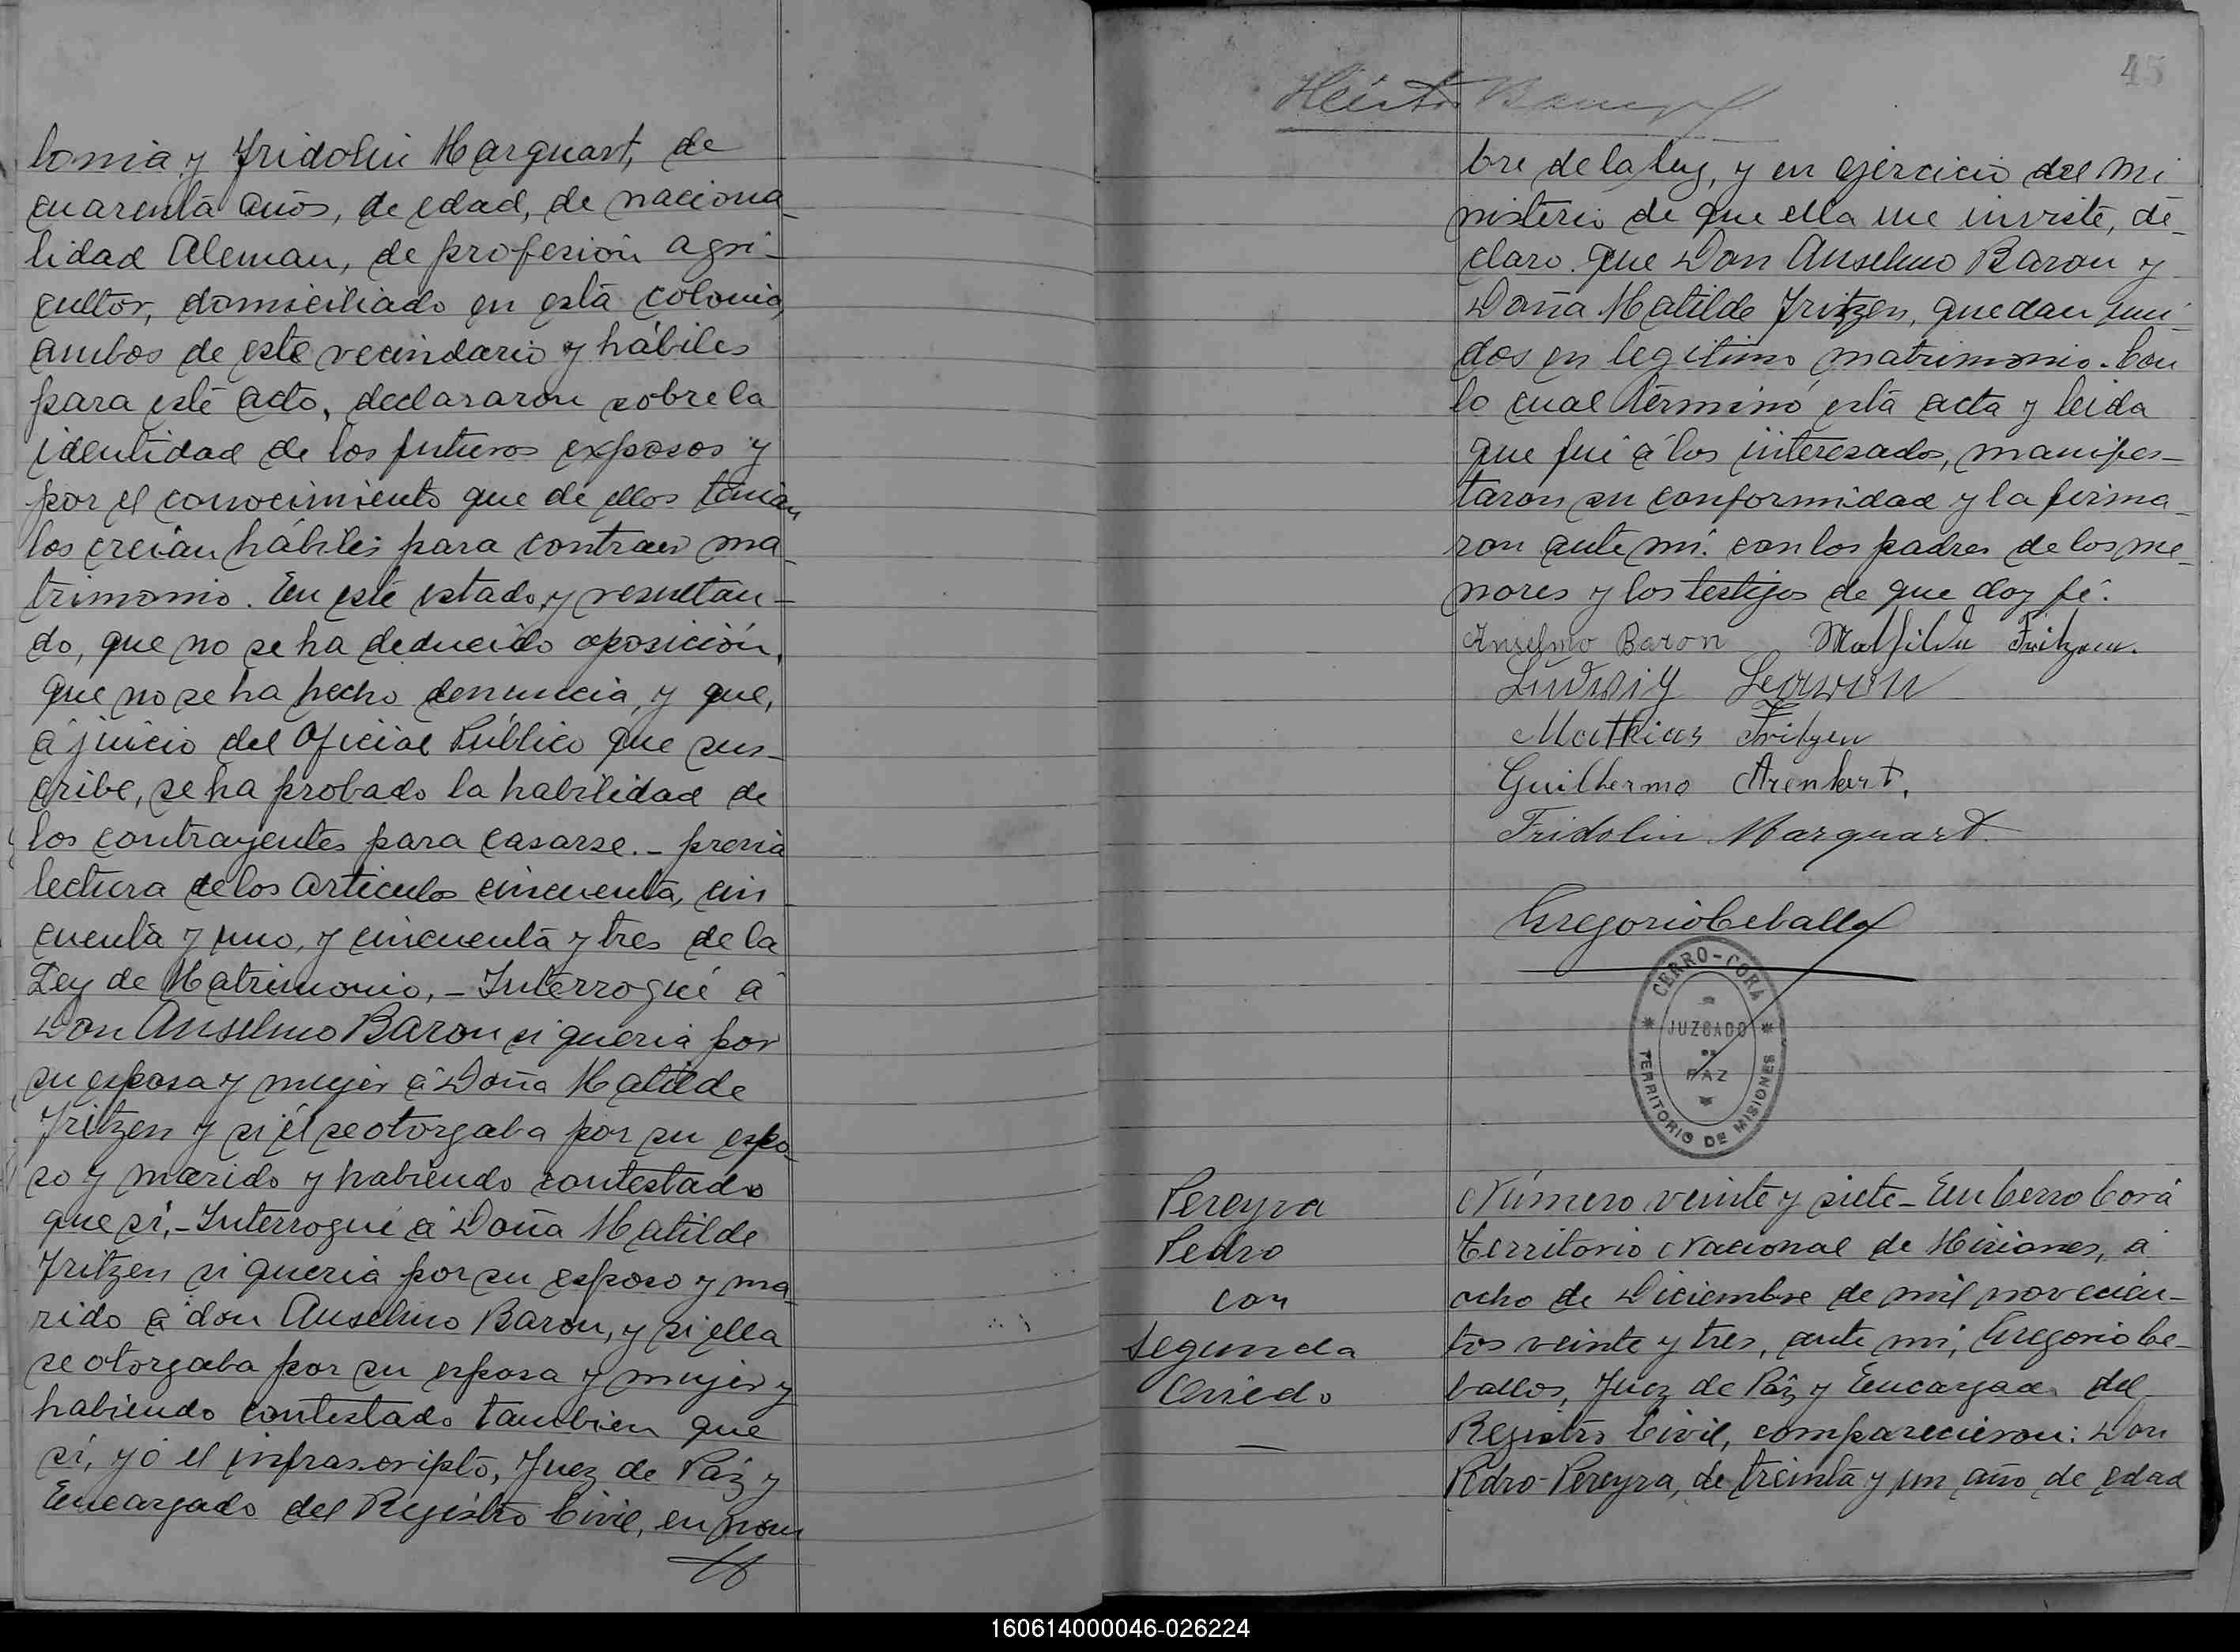 lonia y Fridolin Marquart, de
cuarenta años, de edad, de naciona-
lidad Aleman, de profesión agri-
cultor, domiciliado en está colonia,
ambos de esté vecindario y hábiles
para esté acto, declararon sobre la
identidad de los futuros esposos y
por el conocimiento que de ellos tenian
los creian hábiles para contraer ma-
trimonio. En esté estado, y resultan-
do, que no se ha deducido oposición,
que no se ha hecho denuncia, y que,
á juicio del Oficial Público que sus-
cribe, se ha probado la habilidad de
los contrayentes para casarse. - previa
lectura de los articulos cincuenta, cin
cuenta y uno, y cincuenta y tres de la
Ley de Matrimonio, - Interrogué á
Don Anselmo Baron si queria por
su esposa y mujer á Doña Matilde
Fritzen y si él se otorgaba por su espo-
so y marido y habiendo contestado
que si, - Interrogué á Doña Matilde
Fritzen si queria por su esposo y ma-
rido á don Anselmo Baron, y si ella
se otorgaba por su esposa y mujer y
habiendo contestado tambien que
si, yó el infrascripto, Juez de Paz y
Encargado del Registro Civil, en nom
45
bre de la ley, y en ejercicio del mi
nisterio de que ella me inviste, de-
claro que Don Anselmo Baron y
Doña Matilde Fritzen, quedan uni-
dos en legitimo matrimonio. Con
lo cual términó está acta y leida
que fué á los interesados, manifes-
taron su conformidad y la firma-
ron ante mi. con los padres de los me-
nores y los testigos de que doy fé.
Anselmo Baron Mathilde Fritzen.
Ludwig
Mathias Fritzen
Guilhermo Arenhart.
Fridolin Marquart
Gregorio Ceballos
CERRO-CORA
JUZGADO
DE
PAZ
TERRITORIO DE MISIONES
Pereyra
Pedro
con
Segunda
Oviedo
Número veinte y siete - En Cerro Corá
Territorio Nacional de Misiones, á
ocho de Diciembre de mil novecien-
tos veinte y tres, ante mi, Gregorio Ce-
ballos, Juez de Paz y Encargado del
Registro Civil, comparecieron: Don
Pedro Pereyra, de treinta y un año de edad
160614000046-026224